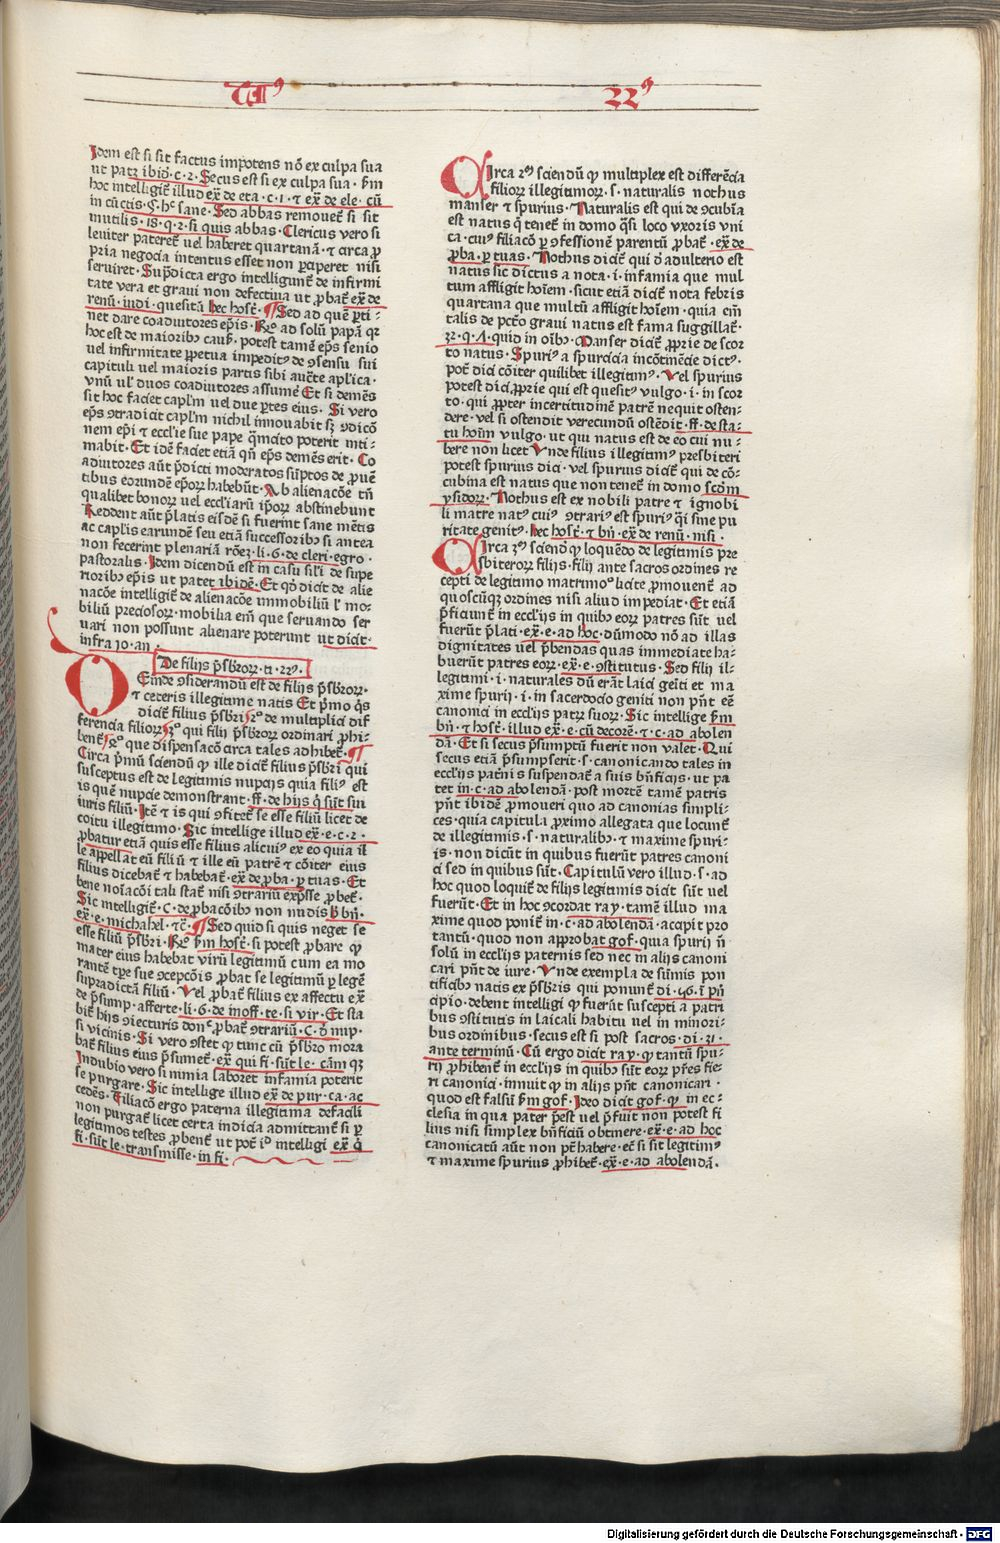 Tiꝰ 22ꝰ
Idem est si sit factus impotens nō ex culpa sua
ut patꝫ ibid̄·c·2·Secus est si ex culpa sua·ẜm
hoc intelligit̄ illud ex̄ de eta·c·1·⁊ ex̄ de ele·cū
in cūctis·§·hꝰ sane·Sed abbas removet̄ si sit
inutilis·18·q·2·si quis abbas·Clericus vero si
leviter pateret̄ vel haberet quartanā·⁊ circa ꝓ
pria negocia intentus esset non ꝑciperet nisi
serviret·Supͣdicta ergo intelligunt̄ de infirmi
tate vera et gravi non defectiva ut ꝓbat̄ ex̄ de
renū·indi·quesitū hec host̄·¶Sed ad quē ꝑti⸗
net dare coadiutores ep̄is·R̄o ad solū papā qꝛ
hoc est de maioribꝫ caus̄·potest tamē ep̄s senio
vel infirmitate ꝑpetua impeditꝰ de ꝯsensu sui
capituli vel maioris partis sibi auc̄te aplica·
vnū vl̓ duos coadiutores assumē Et si demēs
sit hoc faciet capl̄m vel due ꝑtes eius·Si vero
ep̄s ꝯtradicit capl̄m nichil innovabit sꝫ ꝯdicō
nem ep̄i ⁊ eccl̄ie sue pape qͣmcito poterit inti⸗
mabit·Et idē faciet etiā qn̄ ep̄s demēs erit·Co
adiutores aūt p̄dicti moderatos sūptos de ꝓuē
tibus eorundē ep̄oꝝ habebūt·Ab alienacōe tn̄
qualibet bonoꝝ vel eccl̄iarū ip̄oꝝ abstinebunt
Reddent aūt p̄latis eisdē si fuerint sane mētis
ac capl̄is earundē seu etiā successoribꝫ si antea
non fecerint plenariā rōeꝫ·li·6·de cleri·egro·
pastoralis·Idem dicendū est in casu sil̄i de supe
rioribꝫ ep̄is ut patet ibidē·Et qd̓ dicit̄ de alie
nacōe intelligit̄ de alienacōe immobiliū l̓ mo⸗
biliū preciosoꝝ·mobilia em̄ que servando ser
vari non possunt alienare poterunt ut dicit̄·
infra 10·an·
De filijs p̄sbr̄oꝝ·ti·22ꝰ·
DEinde ꝯsiderandū est de filijs p̄sbr̄oꝝ·
⁊ ceteris illegitime natis Et pͥmo qͦs
dicit̄ filius p̄sbr̄i 2ͦ de multiplici dif
ferencia filioꝝ 3ͦ qui filij p̄sbr̄oꝝ ordinari ꝓhi⸗
bent̄ 4ͦ que dispensacō circa tales adhibet̄·¶
Circa pͥmū sciendū ꝙ ille dicit̄ filius p̄sbr̄i qui
susceptus est de legitimis nupcijs quia filiꝰ est
is quē nupcie demonstrant·ff·de hijs qͥ sūt sui
iuris filiū·Itē ⁊ is qui ꝯfitet̄ se esse filiū licet de
coitu illegitimo·Sic intellige illud ex̄·e·c·2·
ꝓbatur etiā quis esse filius alicuiꝰ ex eo quia il
le appellat eū filiū ⁊ ille eū patrē ⁊ cōiter eius
filius dicebat̄ ⁊ habebat̄·ex̄ de ꝓba·ꝑ tuas·Et
bene noīacōi tali stat̄ nisi ꝯtrariū expͥsse ꝓbet̄·
Sic intelligit̄·C·de ꝓbacōibꝫ non nudis ꝫ bn̄·
ex̄·e·michahel·⁊c̄·¶Sed quid si quis neget se
esse filiū p̄sbr̄i·R̄o ẜm host̄·si potest ꝓbare ꝙ
mater eius habebat virū legitimū cum ea mo
rantē tp̄re sue ꝯcepcōis ꝓbat se legitimū ꝑ legē
supradictā filiū·Vel ꝓbat̄ filius ex affectu ex̄
de p̄sump·afferte·li·6·de inoff·te·si vir·Et sta
bit̄ hijs ꝯiecturis donͨ ꝓbat̄ ꝯtrariū·C·d̓ nup·
si vicinis·Si vero ꝯstet ꝙ tunc cū p̄sbr̄o mora
bat̄ filius eius p̄sumet̄·ex̄ qui fi·sūt le·cām qꝫ
Indubio vero si nimia laboret infamia poterit
se purgare·Sic intellige illud ex̄ de pur·ca·ac
cedēs·Filiacō ergo paterna illegitima defacili
non purgat̄ licet certa indicia admittant̄ si ꝑ
legitimos testes ꝓbent̄ ut pot̄ iͦ intelligi ex̄ qͥ
fi·sūt le·transmisse·in fi·
CIrca 2ͫ sciendū ꝙ multiplex est differēcia
filioꝝ illegitimoꝝ·s·naturalis nothus
manser ⁊ spurius·Naturalis est qui de ꝯcubīa
est natus qͥ tenet̄ in domo qͣsi loco vxoris vni
ca·cuiꝰ filiacō ꝑ ꝯfessionē parentū ꝓbat̄·ex̄ de
ꝓba·ꝑ tuas·Nothus dicit̄ qui d̓ adulterio est
natus sic dictus a nota·i·infamia que mul
tum affligit hoīem·sicut etiā dicit̄ nota febris
quartana que multū affligit hoīem·quia em̄
talis de pctō gravi natus est fama suggillat̄·
32·q·4·quid in oībꝫ·Manser dicit̄ ꝓprie de scor
to natus·Spuriꝰ a spurcicia incōtinēcie dictꝰ·
pot̄ dici cōiter quilibet illegitimꝰ·Vel spurius
potest dici ꝓprie qui est quesitꝰ vulgo·i·in scor
to·qui ꝓpter incertitudinē patrē nequit osten⸗
dere·vel si ostendit verecundū ostēdit·ff·de sta⸗
tu hoīm vulgo·ut qui natus est de eo cui nu⸗
bere non licet Vnde filius illegitimꝰ presbiteri
potest spurius dici·vel spurius dicit̄ qui de cō⸗
cubina est natus que non tenet̄ in domo scd̄m
ysidoꝝ·Nothus est ex nobili patre ⁊ ignobi
li matre natꝰ cuiꝰ ꝯtrariꝰ est spuriꝰ qͣsi sine pu
ritate genitꝰ·hec host̄·⁊ bn̄·ex̄ de renū·nisi·
CIrca 3ͫ sciendū ꝙ loquēdo de legitimis pre
sbiteroꝝ filijs·filij ante sacros ordines re
cepti de legitimo matrimoͦ licite ꝓmovent̄ ad
quoscūqꝫ ordines nisi aliud impediat·Et etiā
p̄ficiunt̄ in eccl̄ijs in quibꝫ eoꝝ patres sūt vel
fuerūt p̄lati·ex̄·e·ad hoc·dūmodo nō ad illas
dignitates vel p̄bendas quas immediate ha⸗
buerūt patres eoꝝ·ex̄·e·ꝯstitutus·Sed filij il⸗
legitimi·i·naturales dū erāt laici geīti et ma
xime spurij·i·in sacerdocio geniti non pn̄t eē
canonici in eccl̄ijs patꝝ suoꝝ·Sic intellige ẜm
bn̄·⁊ host̄·illud ex̄·e·cū decorē·⁊ c·ad abolen
dā·Et si secus p̄sumptū fuerit non valet·Qui
secus etiā p̄sumpserit·s·canonicando tales in
eccl̄ijs pat̄nis suspendat̄ a suis bn̄ficijs·ut pa
tet in·c·ad abolendā·post mortē tamē patris
pn̄t ibidē ꝓmoveri quo ad canonias simpli⸗
ces·quia capitula ꝓximo allegata que locunt̄
de illegitimis·s·naturalibꝫ·⁊ maxime spuri⸗
is·non dicūt in quibus fuerūt patres canoni
ci sed in quibus sūt·Capitulū vero illud·s·ad
hoc quod loquit̄ de filijs legitimis dicit sūt vel
fuerūt·Et in hoc ꝯcordat ray·tamē illud ma
xime quod ponit̄ in·c·ad abolendā·accipit pro
tantū·quod non approbat gof·quia spurij n̄
solū in eccl̄ijs paternis sed nec in alijs canoni
cari pn̄t de iure·Vnde exempla de sūmis pon
tificibꝫ natis ex p̄sbr̄is qui ponunt̄ di·56·ī pn̄
cipio·debent intelligi ꝙ fuerūt suscepti a patri
bus ꝯstitutis in laicali habitu vel in minori⸗
bus ordinibus·secus est si post sacros·di·31·
ante terminū·Cū ergo dicit ray·ꝙ tantū spu⸗
rij ꝓhibent̄ in eccl̄ijs in quibꝫ sūt eoꝝ pr̄es fie⸗
ri canonici·innuit ꝙ in alijs pn̄t canonicari·
quod est falsū ẜm gof·Ideo dicit gof·ꝙ in ec⸗
clesia in qua pater p̄est vel p̄fuit non potest fi
lius nisi simplex bn̄ficiū obtinere·ex̄·e·ad hoc
canonicatū aūt non pt̄ habere·et̄ si sit legitimꝰ
⁊ maxime spurius ꝓhibet̄·ex̄·e·ad abolendā·
Digitalisierung gefördert durch die Deutsche Forschungsgemeinschaft - DFG